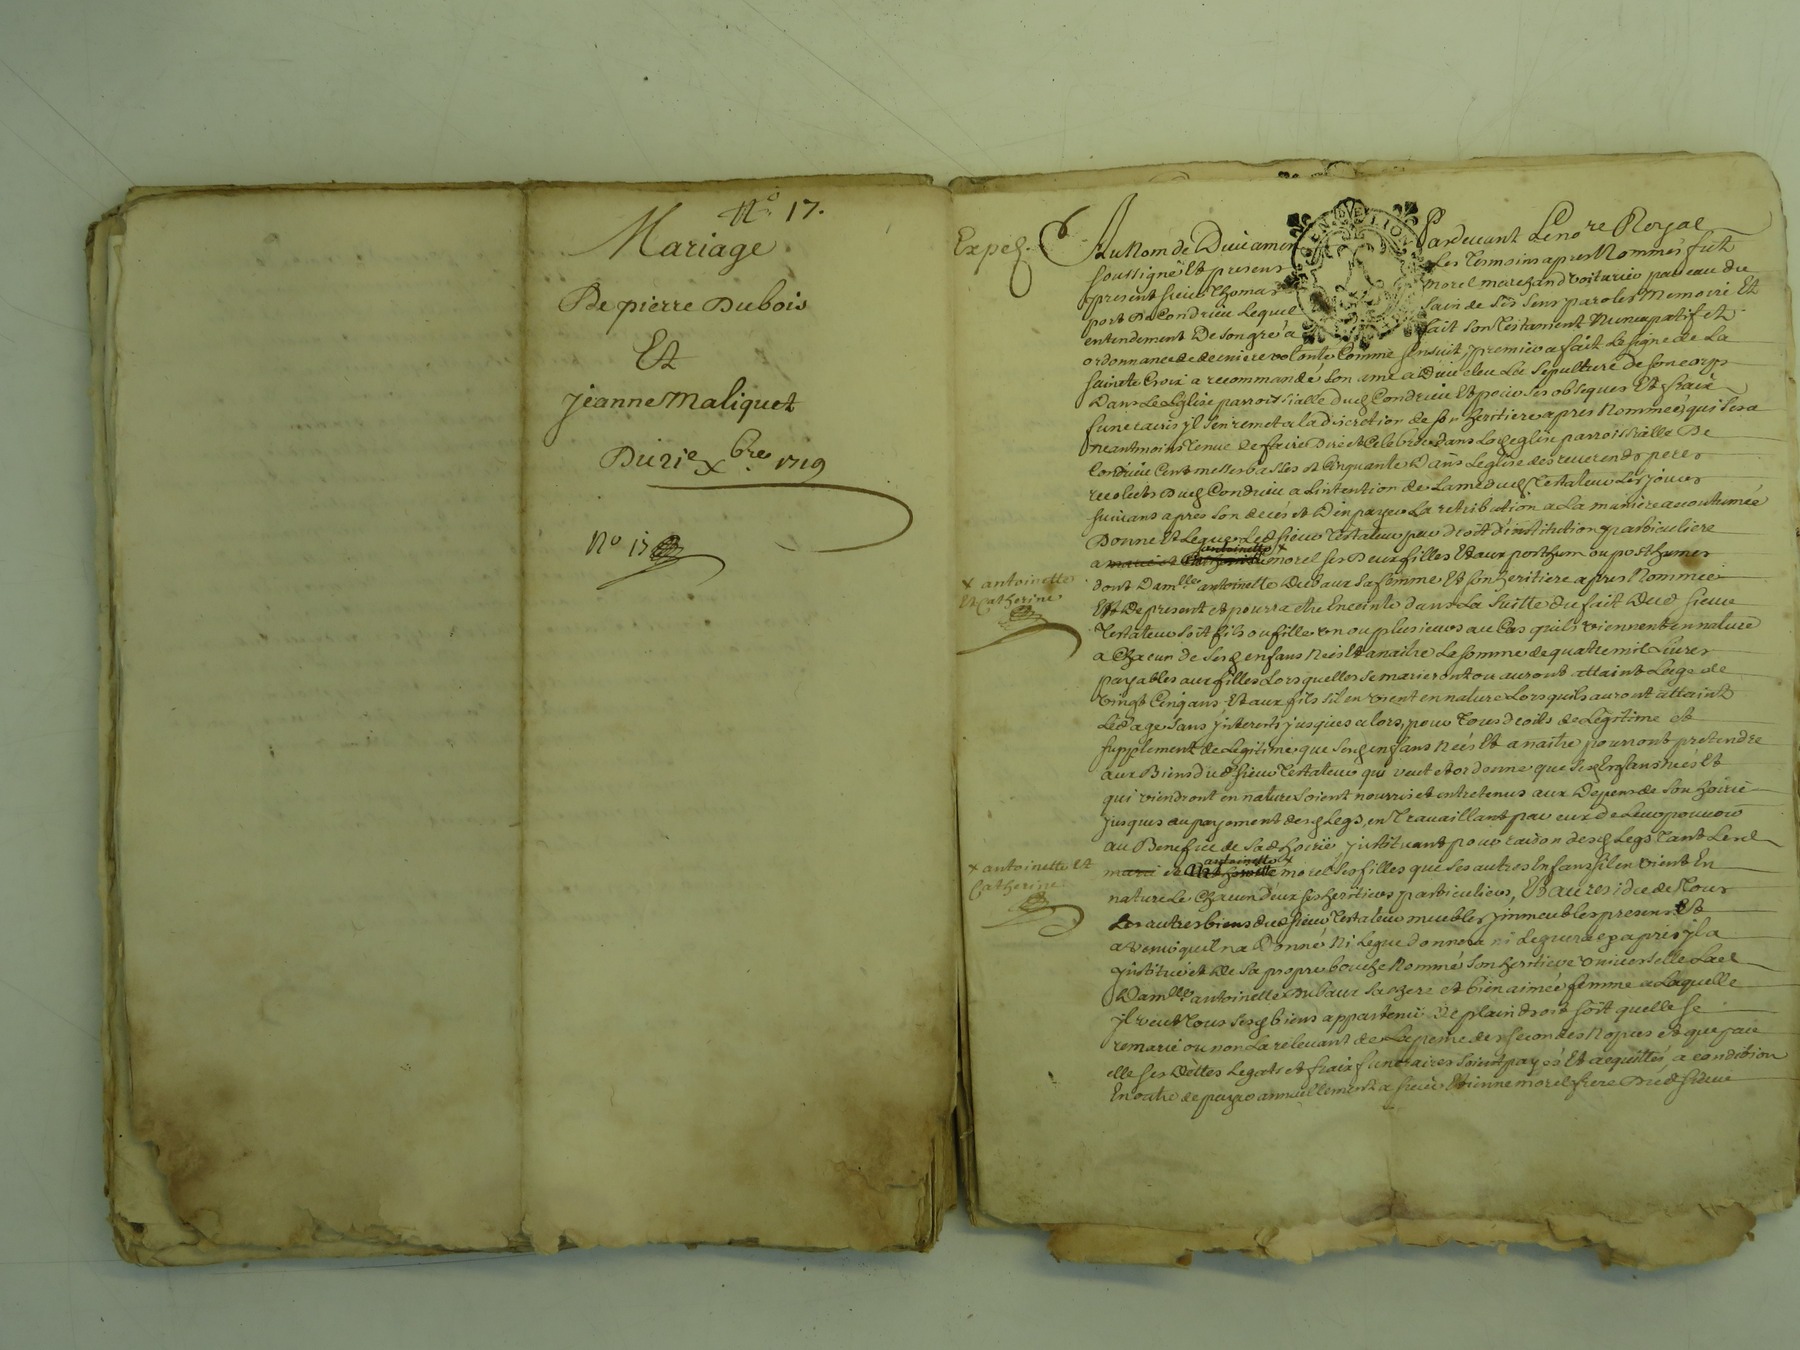 N° 17.
Mariage
De pierre Dubois
Et
jeanne Maliquet
Du 21e xbre 1719
N° 15
Exped.
Au Nom de Dieu amen Pardevant Le no.re Royal
soussigné Et presens Les Temoins apres Nommés fut
present sieur Thomas morel marchand voiturier par eau du
port De Condrieu Lequel sain de ses sens paroles Memoire Et
entendement De son gré a fait son Testament Nuncupatif et
ordonnance de derniere volonté Comme s'ensuit, premier a fait Le signe de La
sainte Croix a recommandé son ame a Dieu eleu La sepulture de son corps
Dans Le Eglise parroissialle dud Condrieu Et pour ses obseques Et fraix
funeraires yl s'en remet a la discretion de son heritiere apres Nommée qui sera
neantmoins Tenue de faire Dire et Celebrer dans Lad eglise parroissialle De
Condrieu Cent messes basses et Cinquante Dans Leglise des reverends peres
recolets dud Condrieu a Lintention de Lame dud Testateur Les jours
suivans apres son deces et D'en payer La retribution a La maniere accoutumée
Donne Et Legue Led sieur Testateur par droit d'institution particuliere
a antoinette x morel ses Deux filles Et aux posthume ou posthumes
x antoinette
Et Catherine
dont Dam.lle antoinette Dubaux sa femme Et son heritiere apres Nommée
Est De present et pourra etre Enceinte dans La suitte du fait Dud sieur
Testateur soit fils ou fille un ou plusieurs au Cas quils viennent en nature
a Chacun de sesd enfans Nés Et a naitre Le somme de quatre mil Livres
payables aux filles Lors quelles se marieront ou auront attaint Lage de
vingt Cinq ans Et aux fils sil en vient en nature Lors quils auront attaint
Led age sans jnterests jusques alors, pour Tous droits de Legitime et
supplement de Legitime que sesd enfans Nés Et a naitre pourront pretendre
aux Biens dud sieur Testateur qui veut et ordonne que sesd Enfans nés Et
qui viendront en nature soient nourris et entretenus aux Depens de son hoirie
jusques au payement desd Legs, en Travaillant par eux de Leur pouvoir
au Benefice de sad hoirie, jnstituant pour raison desd Legs Tant
antoinette x morel ses filles que ses autres Enfans sil en vient En
x antoinette Et
Catherine
nature Le Chacun d'eux ses heritiers particuliers, Et au residu de Tous
Les autres biens dud sieur Testateur meubles jmmeubles presens Et
a venir quil na Donné Ni Legué donnera ni Leguera cy apres yl a
jnstitué et De sa propre bouche Nommé son heritiere universelle Lad
Dam.lle antoinette Dubaux sa chere et bien aimée femme a Laquelle
yl veut Tous sesd biens appartenir De plain droit soit quelle se
remarie ou non La relevant de La peine des secondes Nopces et que par
elle ses Dettes Legats et fraix funeraires soient payés Et acquittés, a condition
En outre de payer annuellement a sieur Etienne morel frere Dud sieur